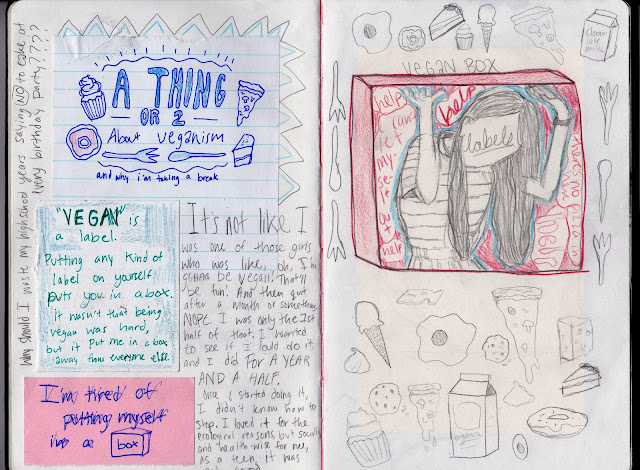 Why should I waste my highschool years saying NO to cake at
every birthday party????
A THING
OR 2
About veganism
and why i'm taking a break
"VEGAN" is
a label.
Putting any kind of
label on yourself
puts you in a box.
It wasn't that being
vegan was hard,
but it put me in a box
away from everyone else.
I'm tired of
putting myself
in a box
It's not like I
was one of those girls
who was like, oh, I'm
GONNA be vegan! That'll
be fun. And then quit
after a month or something.
NOPE. I was only the 1st
half of that. I wanted
to see if I could do it,
and I did FOR A YEAR
AND A HALF.
once I started doing it,
I didn't know how to
stop. I loved it for the
ecological reasons, but socially
and health wise for me,
as a teen, it was
Choco
late
milk
VEGAN BOX
help
help
labels
my
se
help
organic